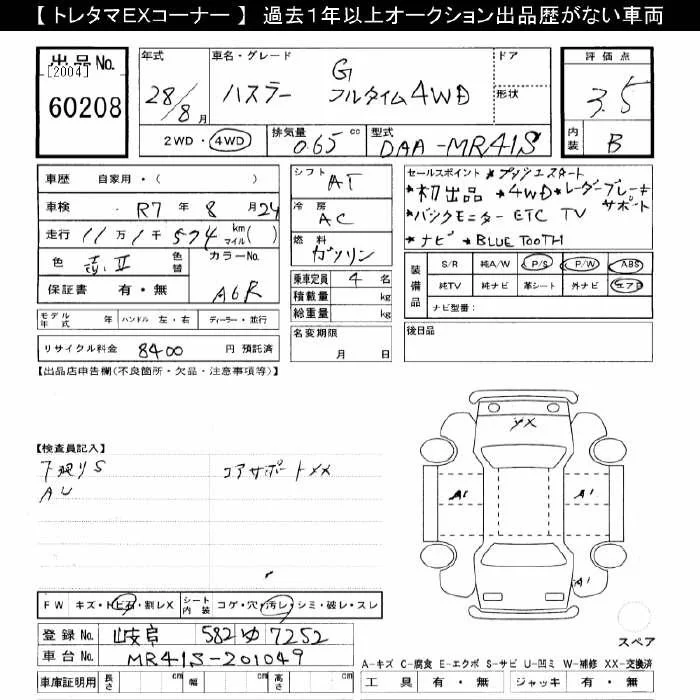 【 トレタマEXコーナー 】 過去1年以上オークション出品歴がない車両
出品 No. [2004] 60208
年式 28/8月
車名・グレード ハスラー G フルタイム4WD
ドア 形状
評価点 3.5
内装 B
2WD・4WD 排気量 0.65 cc 型式 DAA-MR41S
車歴 自家用・( )
車検 R7 年 8 月 24
走行 11万1千574 km マイル( )
色 色替 カラーNo. A6R
保証書 有・無
モデル年式 年 ハンドル 左・右 ディーラー・並行
リサイクル料金 8400 円 預託済
シフト AT
冷房 AC
燃料 ガソリン
乗車定員 4 名
積載量 kg
総重量 kg
名変期限 月 日
セールスポイント ★プッシュスタート
★初出品 ★4WD ★レーダーブレーキサポート
★バックモニター ETC TV
★ナビ ★BLUETOOTH
装備品 S/R 純A/W P/S P/W ABS
純TV 純ナビ 革シート 外ナビ エアB
ナビ型番:
後日品
【出品店申告欄(不良箇所・欠品・注意事項等)】
【検査員記入】
下廻りS コアサポートXX
AU
YX
A1 A1
A1
スペア
FW キズ・トビ石・割レX シート内装 コゲ・穴・汚レ・シミ・破レ・スレ
登録 No. 岐阜 582 ゆ 7252
車台 No. MR41S-201049
車庫証明用 長さ cm 幅 cm 高さ cm
A-キズ C-腐食 E-エクボ S-サビ U-凹ミ W-補修 XX-交換済
工具 有・無 ジャッキ 有・無